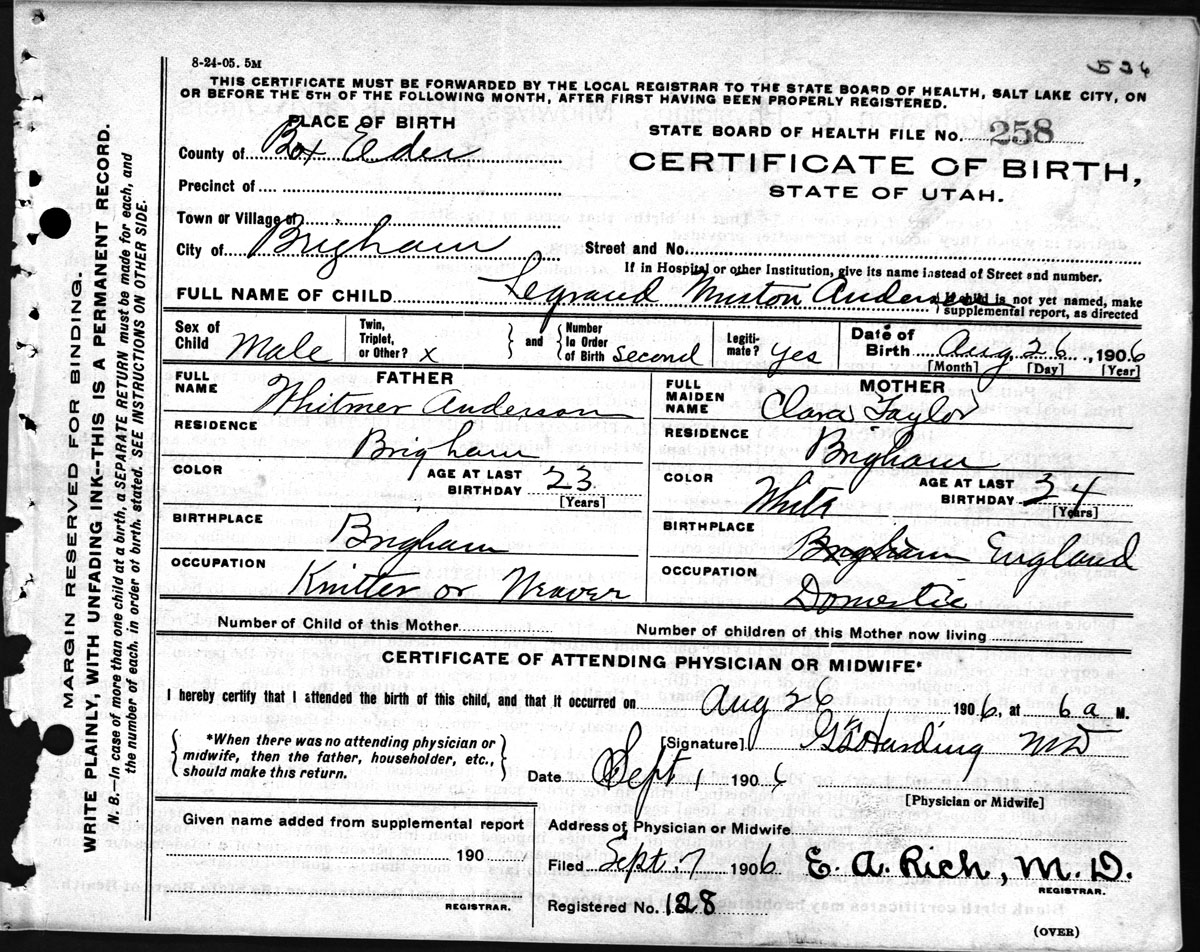 8-24-05. 5M
536
THIS CERTIFICATE MUST BE FORWARDED BY THE LOCAL REGISTRAR TO THE STATE BOARD OF HEALTH, SALT LAKE CITY, ON
OR BEFORE THE 5TH OF THE FOLLOWING MONTH, AFTER FIRST HAVING BEEN PROPERLY REGISTERED.
PLACE OF BIRTH
STATE BOARD OF HEALTH FILE No. 258
County of Box Elder
CERTIFICATE OF BIRTH,
STATE OF UTAH.
Precinct of
Town or Village of
City of Brigham Street and No.
If in Hospital or other Institution, give its name instead of Street and number.
FULL NAME OF CHILD Legrand Anderson
If child is not yet named, make
supplemental report, as directed
Sex of Child Male Twin, Triplet, or Other? x and Number In Order of Birth second Legiti-mate? yes Date of Birth Aug 26, 1906
[Month] [Day] [Year]
FATHER MOTHER
FULL NAME Whitmer Anderson FULL MAIDEN NAME Clara Taylor
RESIDENCE Brigham RESIDENCE Brigham
COLOR AGE AT LAST BIRTHDAY 23 [Years] COLOR White AGE AT LAST BIRTHDAY 34 [Years]
BIRTHPLACE Brigham BIRTHPLACE Brigham England
OCCUPATION Knitter or Weaver OCCUPATION Domestic
Number of Child of this Mother Number of children of this Mother now living
CERTIFICATE OF ATTENDING PHYSICIAN OR MIDWIFE*
I hereby certify that I attended the birth of this child, and that it occurred on Aug 26 1906, at 6 a M.
*When there was no attending physician or
midwife, then the father, householder, etc.,
should make this return.
[Signature] Harding MD
Date Sept 1 190
[Physician or Midwife]
Given name added from supplemental report
190
REGISTRAR.
Address of Physician or Midwife
Filed Sept. 7 1906 E. A. Rich, M. D.
REGISTRAR.
Registered No. 128
(OVER)
MARGIN RESERVED FOR BINDING.
WRITE PLAINLY, WITH UNFADING INK--THIS IS A PERMANENT RECORD.
N. B.--In case of more than one child at a birth, a SEPARATE RETURN must be made for each, and
the number of each, in order of birth, stated. SEE INSTRUCTIONS ON OTHER SIDE.